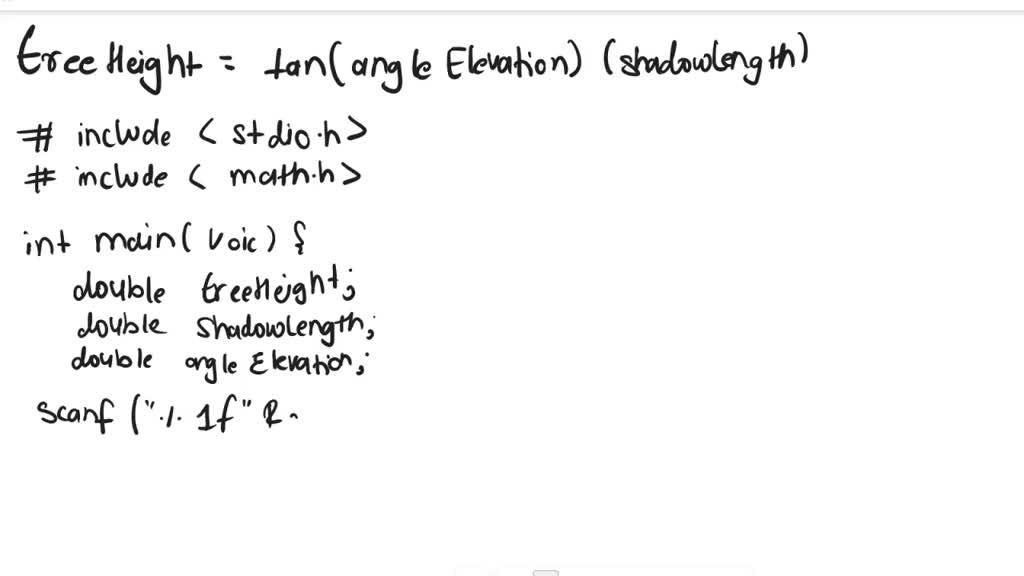 treeHeight = tan(angleElevation) (shadowlength)
# include < stdio.h>
# include < math.h>
int main( Voic) {
double treeHeight;
double shadowLength;
double angleElevation;
scanf ("% 1f" &